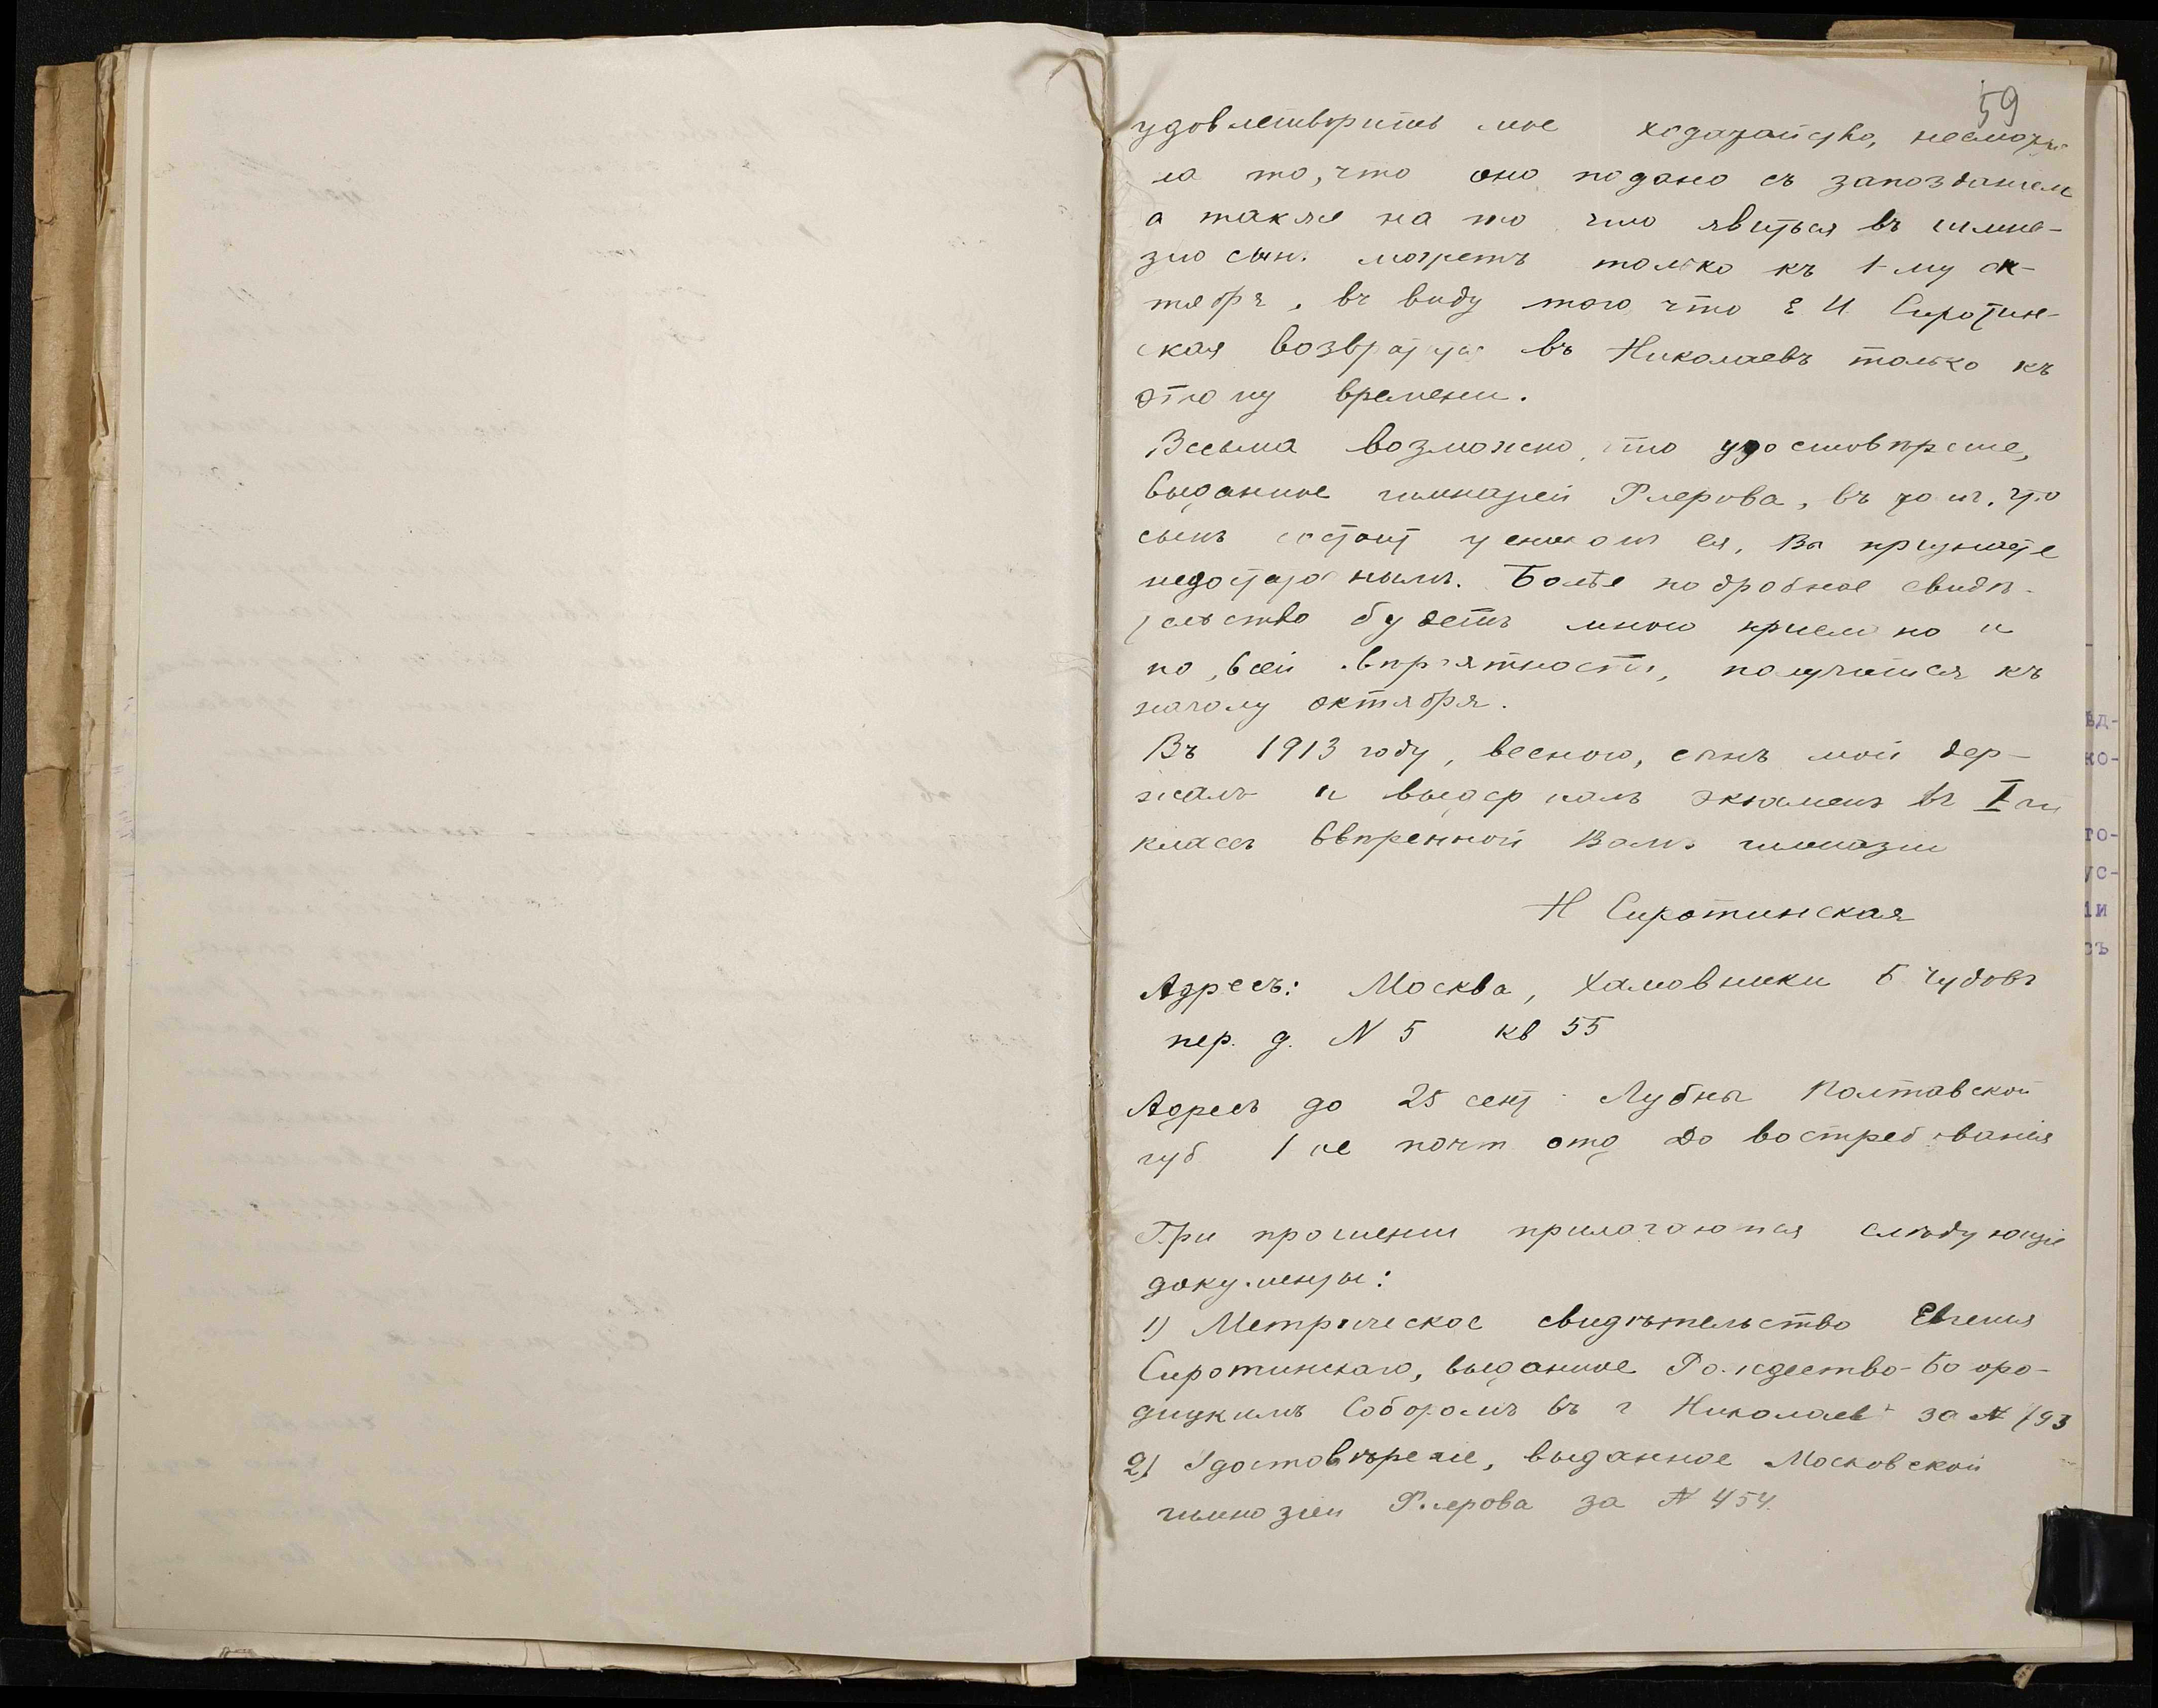 59
удовлетворить мое ходатайство, несмотря
на то, что оно подано съ запозданіем
а также на то что явиться въ гимна-
зію сынъ можетъ только къ 1-му ок-
тября, въ виду того что Е И Сиротин-
ская возвратится въ Николаевъ только къ
этому времени.
Весьма возможно, что удостовѣреніе,
выданное гимназіей Флерова, въ том, что
сынъ состоит учеником ея, Вы признаете
недостаточнымъ. Болѣе подробное свидѣ-
тельство будетъ мною прислано и
по всей вѣроятности, получится къ
началу октября.
Въ 1913 году, весною, сынъ мой дер-
жалъ и выдержалъ экзаменъ въ I-ый
классъ ввѣренной Вамъ гимназіи
Н Сиротинская
Адресъ: Москва, Хамовники Б Чудовъ
пер. д. N 5 кв 55
Адресъ до 25 сент. Лубны Полтавской
губ 1 ое почт отд до востребованія
При прошеніи прилагаются слѣдующіе
документы:
1) Метрическое свидѣтельство Евгенія
Сиротинскаго, выданное Рождество-Богоро-
дицкимъ Соборомъ въ г Николаевѣ за N 193
2) Удостовѣреніе, выданное Московской
гимназіей Флерова за N 454.
ѣд-
ко-
го-
ус-
іи
съ